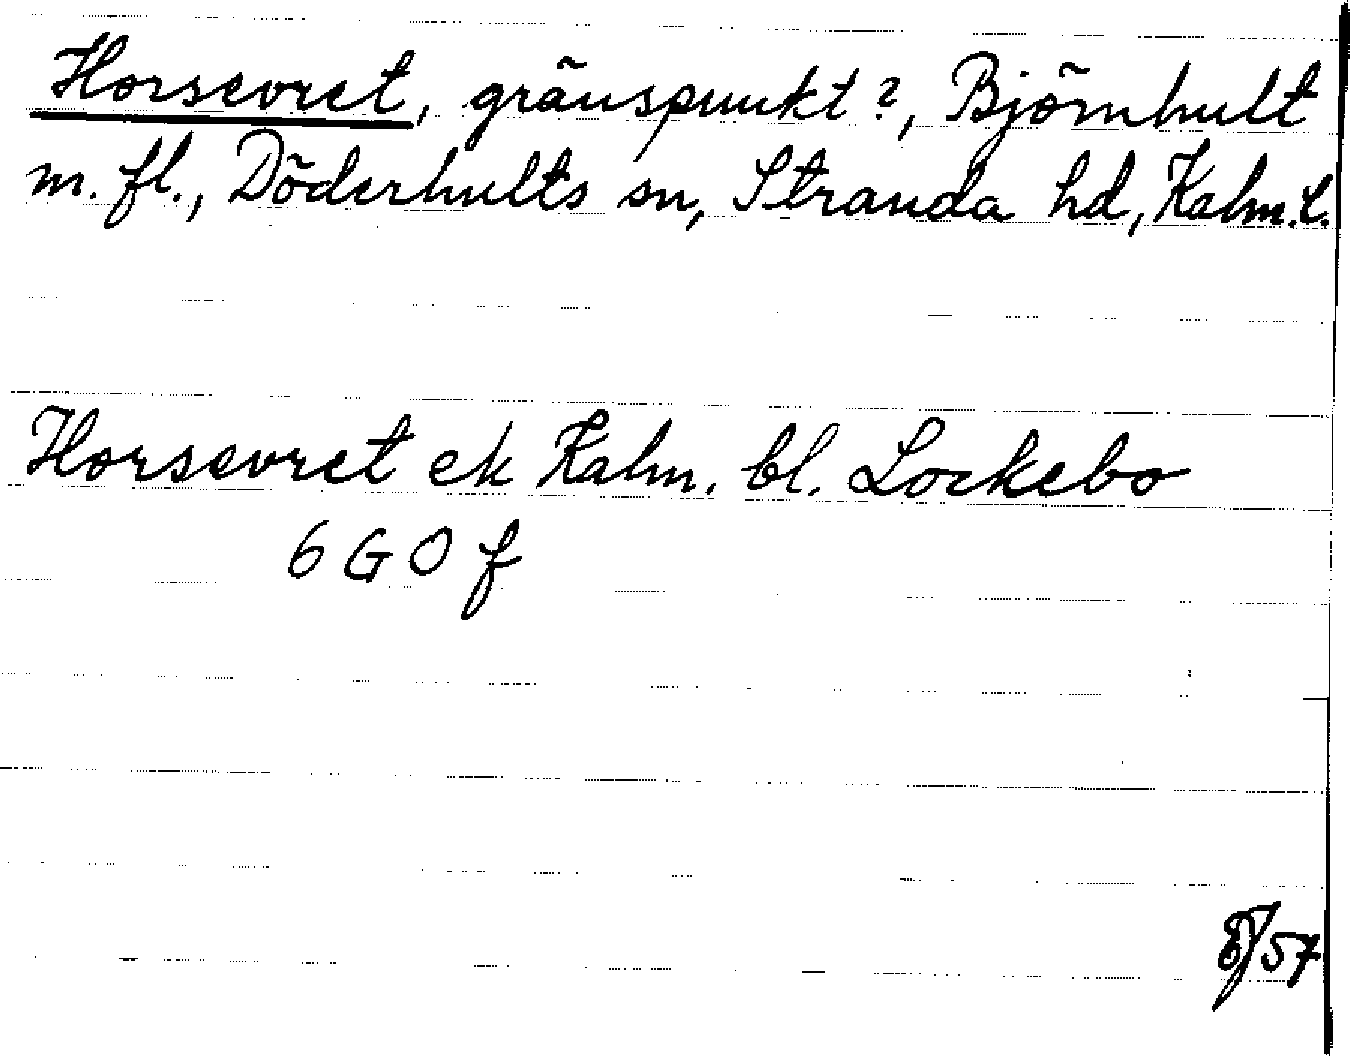 Horsevret, gränspunkt?, Björnhult
m. fl., Döderhults sn, Stranda hd, Kalm. l.
Horsevret ek Kalm. bl. Lockebo
6 G O f
8/57